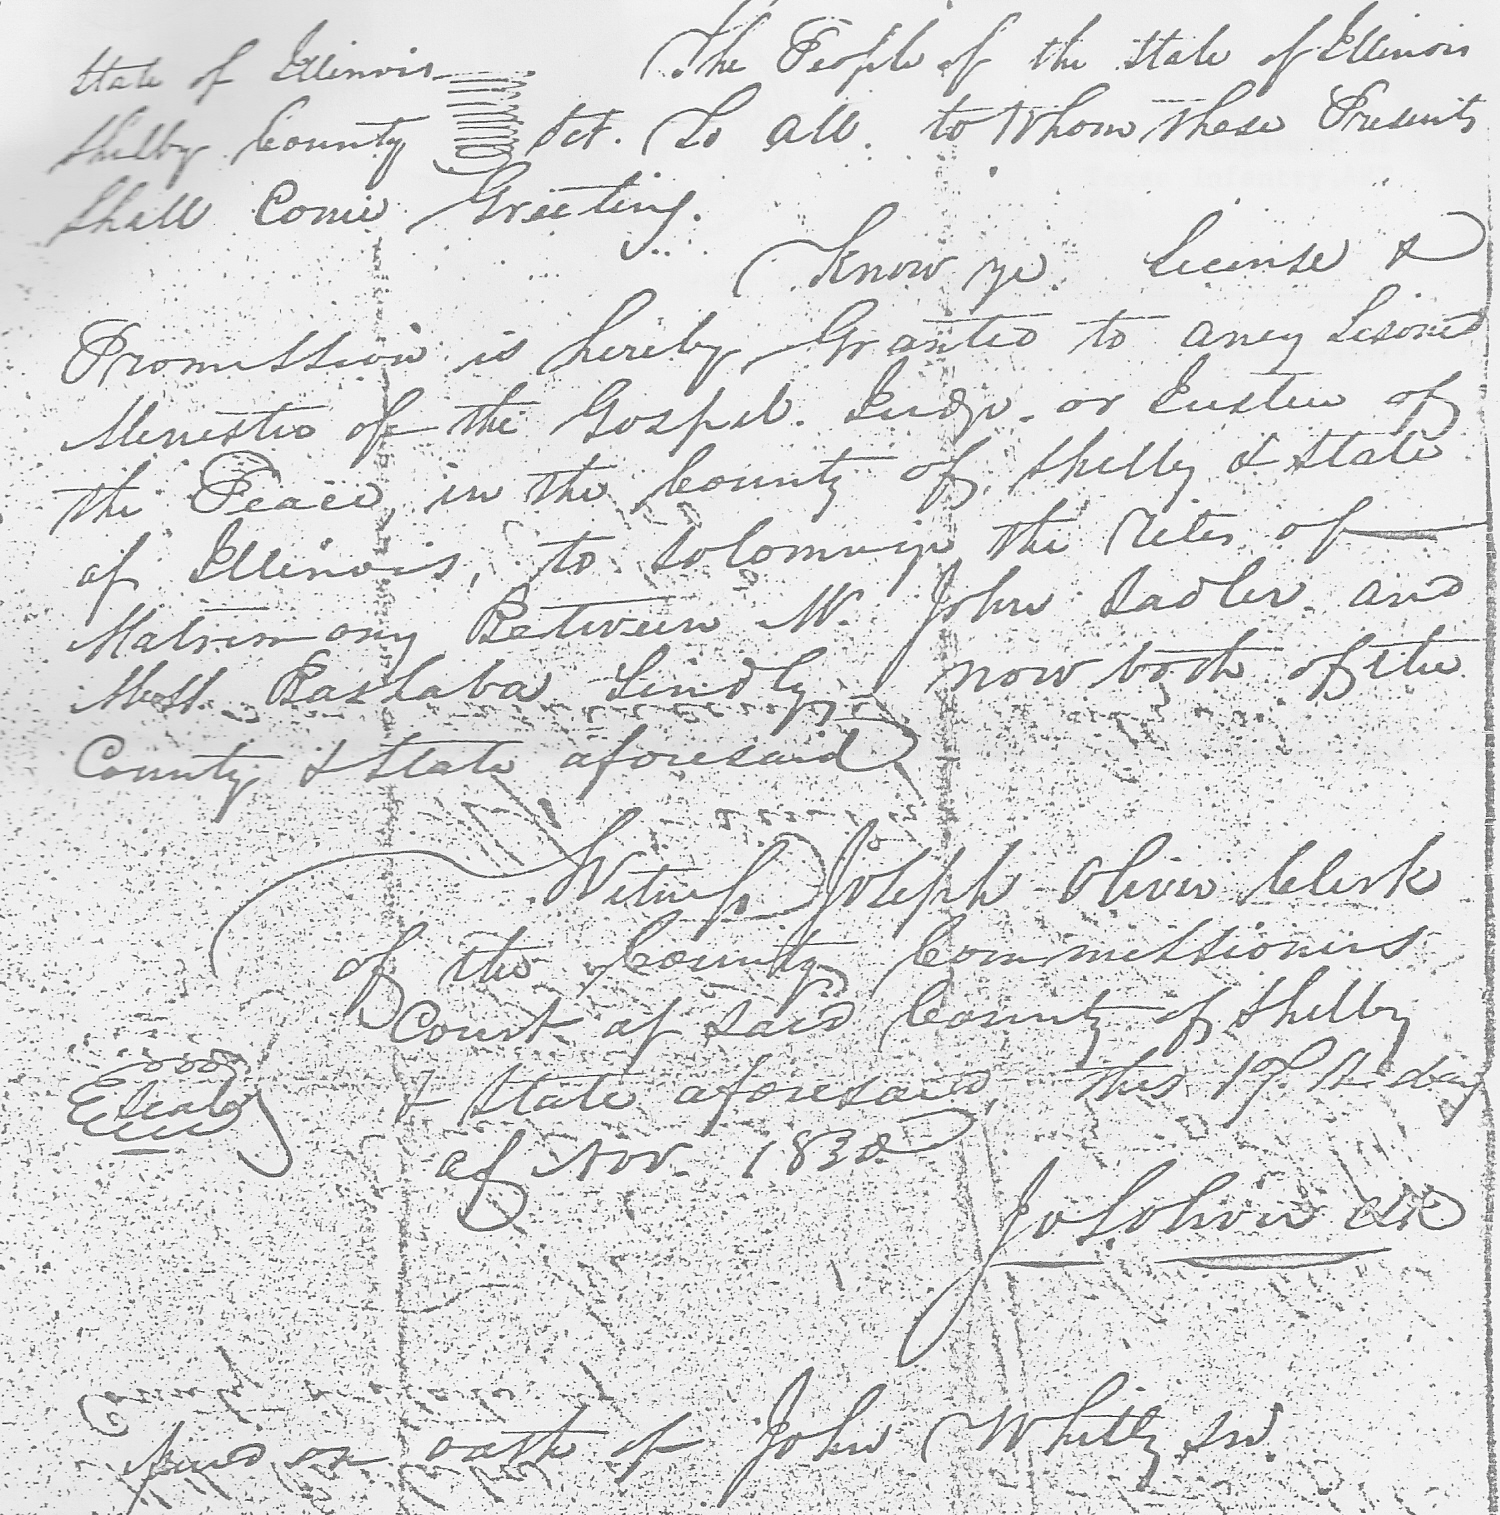 State of Illinois The People of the State of Illinois
Shelby County Sct. To All to Whom these Presents
Shall Come Greeting.
Know ye License &
Promission is hereby Granted to aney Lisoned
Menister of the Gospel. Judge. or Justice of
the Peace, in the County of Shelby & State
of Illinois, to solomnize the rites of
Matrimony Between Mr. John Sadler and
Lindly now both of the
County & State aforesaid
Witness Joseph Oliver Clerk
of the County Commissioners
Court of said County of Shelby
& State aforesaid, this day
Seal
of Nov. 1832
Jos. Oliver Clk
on oath of John Whitly Sr.